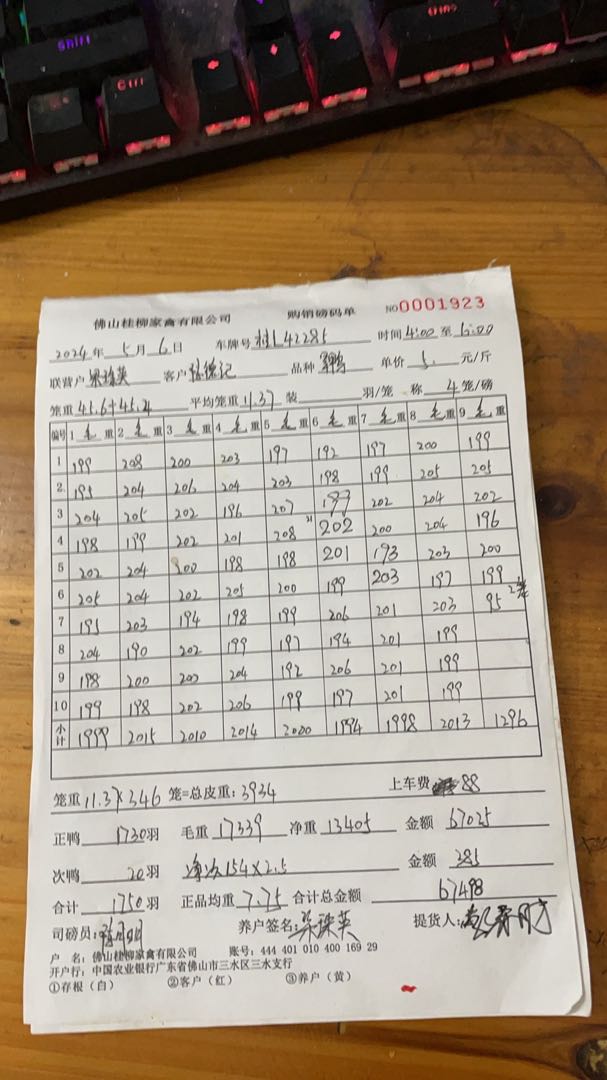 Shift
Ctrl
佛山桂柳家禽有限公司 购销磅码单 NO0001923
2024年 5月 6日 车牌号 桂L42285 时间 4:00 至 6:00
联营户 梁珠英 客户 品种 单价 5. 元/斤
笼重 45.6+45.4 平均笼重 11.37 装 羽/笼 称 4 笼/磅
编号 1 毛 重 2 毛 重 3 毛 重 4 毛 重 5 毛 重 6 毛 重 7 毛 重 8 毛 重 9 毛 重
1 199 208 200 203 197 192 197 200 199
2 195 204 206 204 203 198 199 205 205
3 204 205 202 196 207 197 202 204 202
4 198 199 202 201 208 202 200 204 196
5 202 204 200 198 198 201 193 203 200
6 205 204 202 205 200 199 203 197 199
7 195 203 194 198 199 206 201 203 95 2笼
8 204 190 202 199 197 194 201 199
9 198 200 204 192 206 201 199
10 199 198 202 206 199 197 201 199
小计 1999 2015 2010 2014 2000 1994 1998 2013 1296
笼重 11.37×346 笼=总皮重: 3934 上车费 88
正鸭 1730 羽 毛重 17339 净重 13405 金额 67025
次鸭 20 羽 154×2.5 金额 385
合计 1750 羽 正品均重 7.75 合计总金额 67498
司磅员: 养户签名: 梁珠英 提货人:
户 名: 佛山桂柳家禽有限公司 账号: 444 401 010 400 169 29
开户行: 中国农业银行广东省佛山市三水区三水支行
①存根（白） ②客户（红） ③养户（黄）